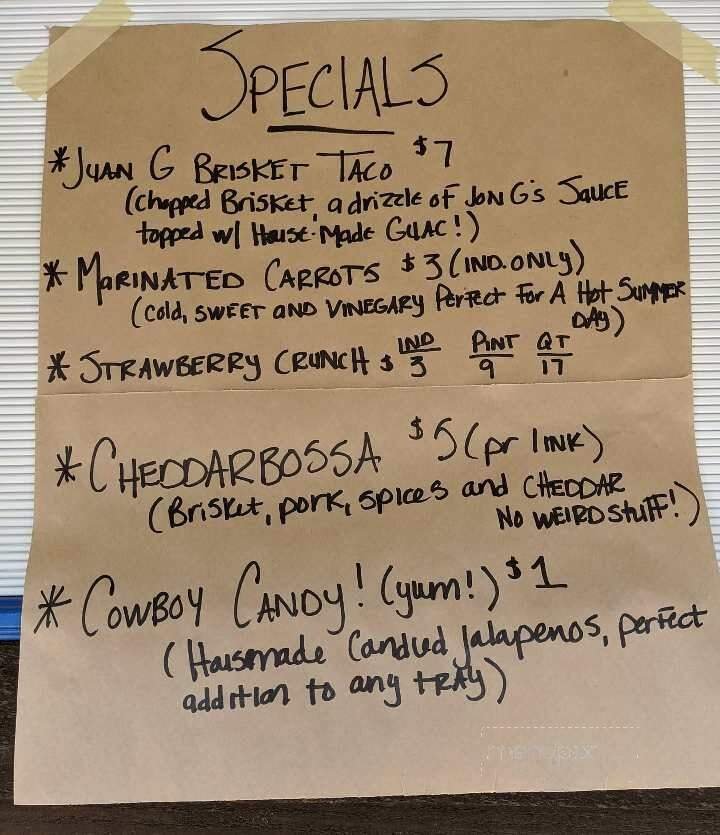 SPECIALS
* JUAN G BRISKET TACO $7
(chopped BRISKET, a drizzle of JON G's SAUCE
topped w/ House-Made GUAC!)
* MARINATED CARROTS $3 (IND. ONLY)
(Cold, SWEET AND VINEGARY PERFECT FOR A Hot SUMMER
DAY)
* STRAWBERRY CRUNCH $ IND/3 PINT/9 QT/17
* CHEDDARBOSSA $5 (pr LINK)
(Brisket, pork, spices and CHEDDAR
NO WEIRD STUFF!)
* COWBOY CANDY! (yum!) $1
(Housmade Candied Jalapenos, perfect
addition to any TRAY)
menupix